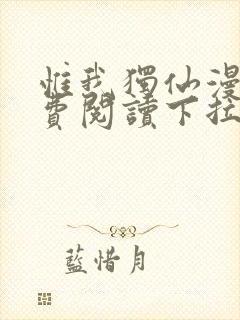 惟我獨仙漫
費閱讀下拉
藍惜月